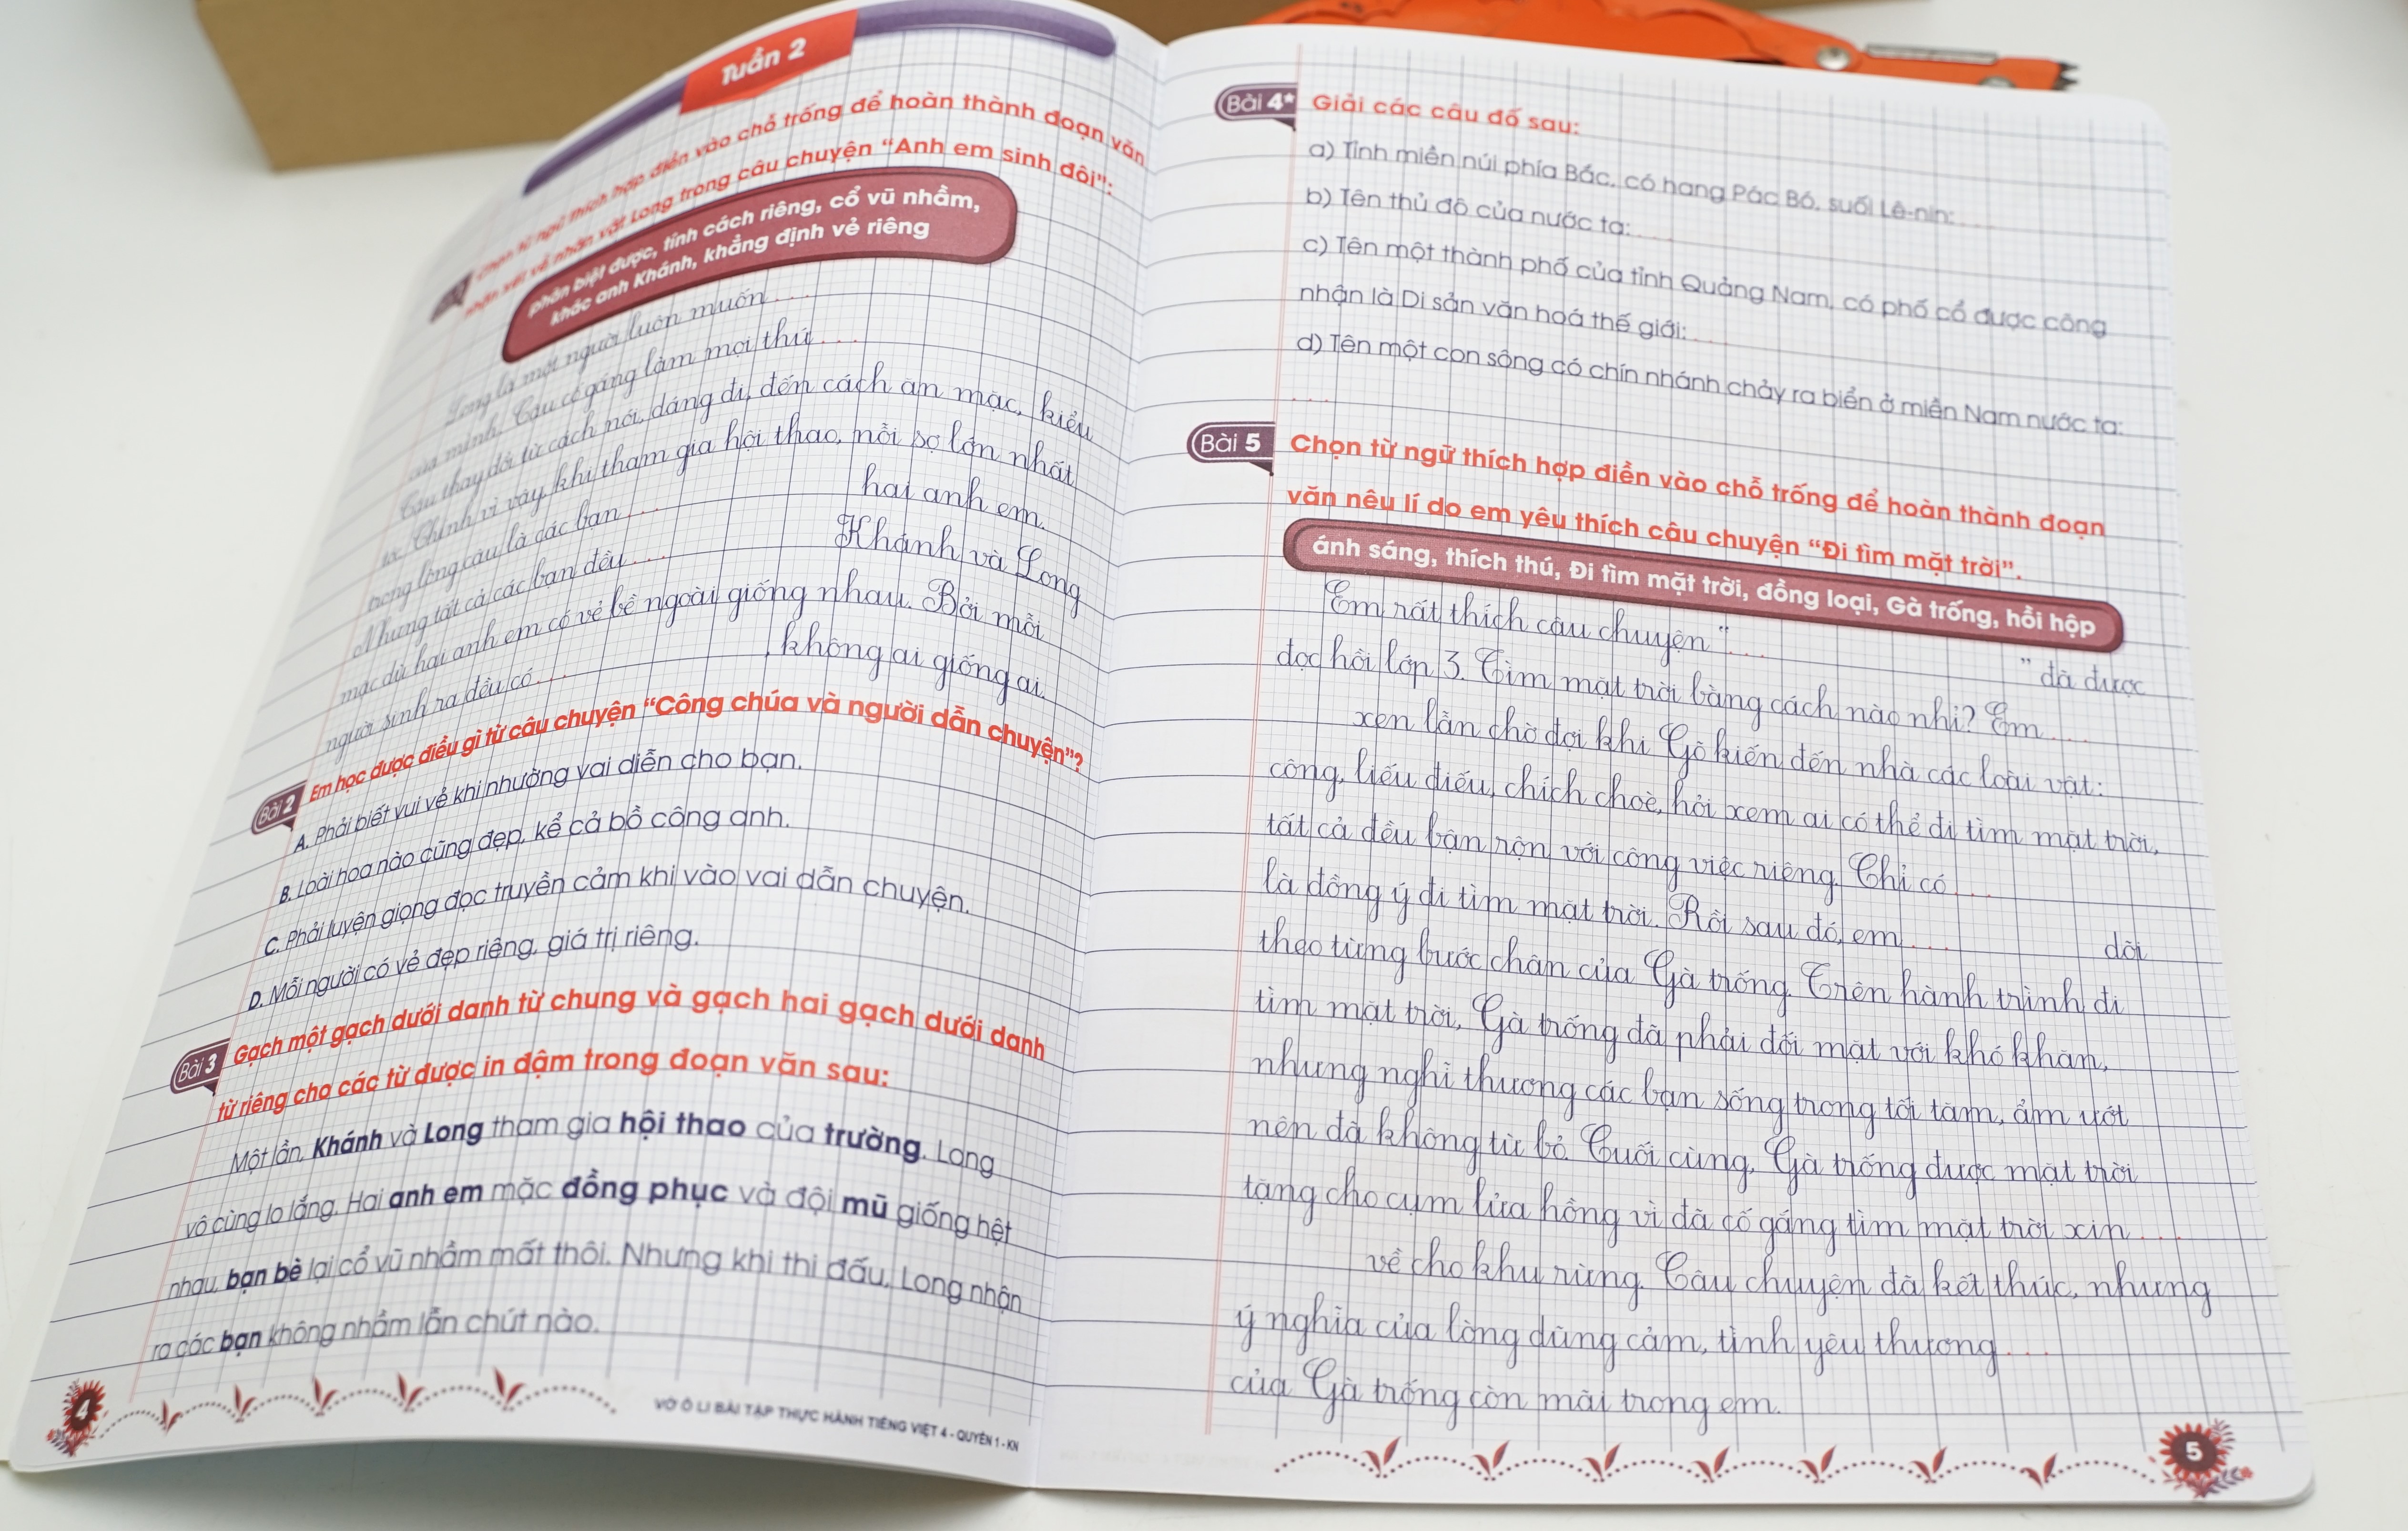 Tuần 2
Chọn từ ngữ thích hợp điền vào chỗ trống để hoàn thành đoạn văn
nhận xét về nhân vật Long trong câu chuyện “Anh em sinh đôi”:
phân biệt được, tính cách riêng, cổ vũ nhầm,
khác anh Khánh, khẳng định vẻ riêng
Long là một người luôn muốn ...
của mình. Cậu cố gắng làm mọi thứ ...
Cậu thay đổi từ cách nói, dáng đi, đến cách ăn mặc, kiểu
tóc. Chính vì vậy, khi tham gia hội thao, nỗi sợ lớn nhất
trong lòng cậu là các bạn ... hai anh em.
Nhưng tất cả các bạn đều ... Khánh và Long
mặc dù hai anh em có vẻ bề ngoài giống nhau. Bởi mỗi
người sinh ra đều có ... , không ai giống ai.
Bài 2 Em học được điều gì từ câu chuyện “Công chúa và người dẫn chuyện”?
A. Phải biết vui vẻ khi nhường vai diễn cho bạn.
B. Loài hoa nào cũng đẹp, kể cả bồ công anh.
C. Phải luyện giọng đọc truyền cảm khi vào vai dẫn chuyện.
D. Mỗi người có vẻ đẹp riêng, giá trị riêng.
Bài 3 Gạch một gạch dưới danh từ chung và gạch hai gạch dưới danh
từ riêng cho các từ được in đậm trong đoạn văn sau:
Một lần, Khánh và Long tham gia hội thao của trường. Long
vô cùng lo lắng. Hai anh em mặc đồng phục và đội mũ giống hệt
nhau, bạn bè lại cổ vũ nhầm mất thôi. Nhưng khi thi đấu, Long nhận
ra các bạn không nhầm lẫn chút nào.
4
VỞ Ô LI BÀI TẬP THỰC HÀNH TIẾNG VIỆT 4 - QUYỂN 1 - KN
Bài 4* Giải các câu đố sau:
a) Tỉnh miền núi phía Bắc, có hang Pác Bó, suối Lê-nin: ...
b) Tên thủ đô của nước ta: ...
c) Tên một thành phố của tỉnh Quảng Nam, có phố cổ được công
nhận là Di sản văn hoá thế giới: ...
d) Tên một con sông có chín nhánh chảy ra biển ở miền Nam nước ta:
...
Bài 5 Chọn từ ngữ thích hợp điền vào chỗ trống để hoàn thành đoạn
văn nêu lí do em yêu thích câu chuyện “Đi tìm mặt trời”.
ánh sáng, thích thú, Đi tìm mặt trời, đồng loại, Gà trống, hồi hộp
Em rất thích câu chuyện “ ... ” đã được
đọc hồi lớp 3. Tìm mặt trời bằng cách nào nhỉ? Em ...
xen lẫn chờ đợi khi Gõ kiến đến nhà các loài vật:
công, liếu điếu, chích choè, hỏi xem ai có thể đi tìm mặt trời,
tất cả đều bận rộn với công việc riêng. Chỉ có ...
là đồng ý đi tìm mặt trời. Rồi sau đó, em ... dõi
theo từng bước chân của Gà trống. Trên hành trình đi
tìm mặt trời, Gà trống đã phải đối mặt với khó khăn,
nhưng nghĩ thương các bạn sống trong tối tăm, ẩm ướt
nên đã không từ bỏ. Cuối cùng, Gà trống được mặt trời
tặng cho cụm lửa hồng vì đã cố gắng tìm mặt trời xin ...
về cho khu rừng. Câu chuyện đã kết thúc, nhưng
ý nghĩa của lòng dũng cảm, tình yêu thương ...
của Gà trống còn mãi trong em.
5